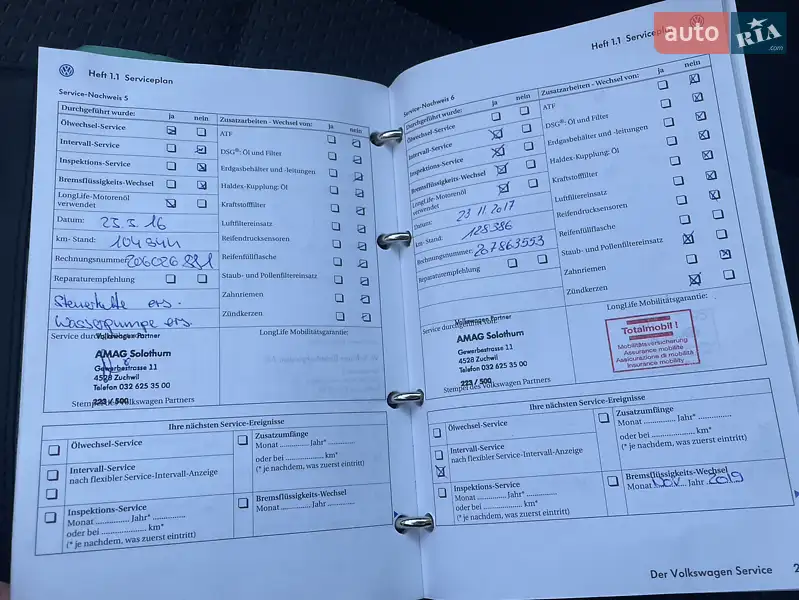 auto RIA .com
Heft 1.1 Serviceplan
Service-Nachweis 5
Durchgeführt wurde: ja nein Zusatzarbeiten - Wechsel von: ja nein
Ölwechsel-Service ATF
Intervall-Service DSG®: Öl und Filter
Inspektions-Service Erdgasbehälter und -leitungen
Bremsflüssigkeits-Wechsel Haldex-Kupplung: Öl
LongLife-Motorenöl verwendet Kraftstofffilter
Datum: 23.5.16 Luftfiltereinsatz
km- Stand: 104844 Reifendrucksensoren
Rechnungsnummer: 206026881 Reifenfüllflasche
Reparaturempfehlung Staub- und Pollenfiltereinsatz
Steuerkette ers. Zahnriemen
Wasserpumpe ers. Zündkerzen
Service durchgeführt von: LongLife Mobilitätsgarantie:
Volkswagen Partner
AMAG Solothurn
Gewerbestrasse 11
4528 Zuchwil
Telefon 032 625 35 00
223 / 500
Stempel des Volkswagen Partners
Ihre nächsten Service-Ereignisse
Ölwechsel-Service Zusatzumfänge
Monat .............. Jahr* ..............
Intervall-Service oder bei .................... km*
nach flexibler Service-Intervall-Anzeige (* je nachdem, was zuerst eintritt)
Inspektions-Service Bremsflüssigkeits-Wechsel
Monat .............. Jahr* .............. Monat .............. Jahr ..............
oder bei .................... km*
(* je nachdem, was zuerst eintritt)
Heft 1.1 Serviceplan
Service-Nachweis 6
Durchgeführt wurde: ja nein Zusatzarbeiten - Wechsel von: ja nein
Ölwechsel-Service ATF
Intervall-Service DSG®: Öl und Filter
Inspektions-Service Erdgasbehälter und -leitungen
Bremsflüssigkeits-Wechsel Haldex-Kupplung: Öl
LongLife-Motorenöl verwendet Kraftstofffilter
Datum: 23.11.2017 Luftfiltereinsatz
km- Stand: 128386 Reifendrucksensoren
Rechnungsnummer: 207863553 Reifenfüllflasche
Reparaturempfehlung Staub- und Pollenfiltereinsatz
Zahnriemen
Zündkerzen
Service durchgeführt von: LongLife Mobilitätsgarantie:
Volkswagen Partner
AMAG Solothurn
Gewerbestrasse 11
4528 Zuchwil
Telefon 032 625 35 00
223 / 500
Stempel des Volkswagen Partners
Totalmobil !
Mobilitätsversicherung
Assurance mobilité
Assicurazione di mobilità
Insurance mobility
Ihre nächsten Service-Ereignisse
Ölwechsel-Service Zusatzumfänge
Monat .............. Jahr* ..............
Intervall-Service oder bei .................... km*
nach flexibler Service-Intervall-Anzeige (* je nachdem, was zuerst eintritt)
Inspektions-Service Bremsflüssigkeits-Wechsel
Monat .............. Jahr* .............. Monat Nov. Jahr 2019
oder bei .................... km*
(* je nachdem, was zuerst eintritt)
Der Volkswagen Service 2